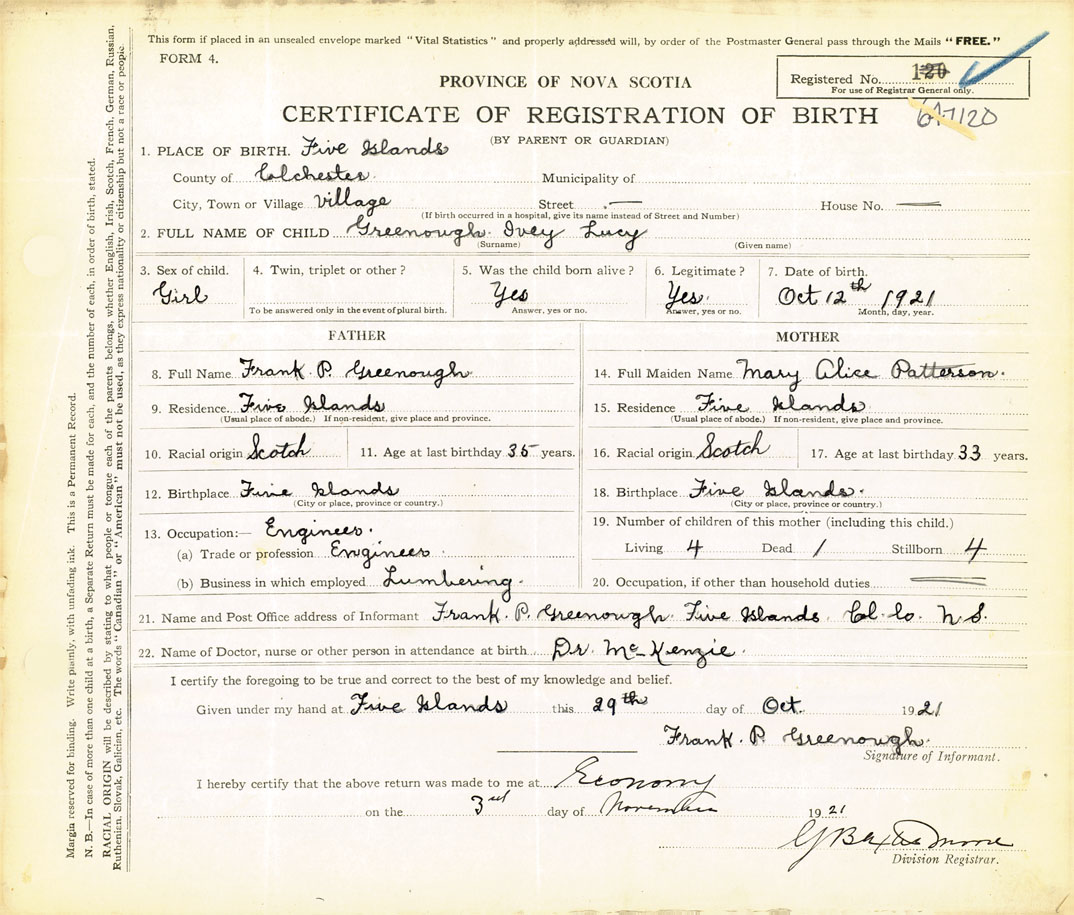 This form if placed in an unsealed envelope marked "Vital Statistics" and properly addressed will, by order of the Postmaster General pass through the Mails "FREE."
FORM 4.
Registered No. 120
For use of Registrar General only.
PROVINCE OF NOVA SCOTIA
CERTIFICATE OF REGISTRATION OF BIRTH
(BY PARENT OR GUARDIAN)
1. PLACE OF BIRTH. Five Islands
County of Colchester. Municipality of
City, Town or Village Village Street — House No. —
(If birth occurred in a hospital, give its name instead of Street and Number)
2. FULL NAME OF CHILD Greenough. Ivey Lucy
(Surname) (Given name)
3. Sex of child. 4. Twin, triplet or other? 5. Was the child born alive? 6. Legitimate? 7. Date of birth.
Girl Yes Yes. Oct 12th 1921
To be answered only in the event of plural birth. Answer, yes or no. Answer, yes or no. Month, day, year.
FATHER
8. Full Name Frank. P. Greenough.
9. Residence Five Islands
(Usual place of abode.) If non-resident, give place and province.
10. Racial origin Scotch 11. Age at last birthday 35 years.
12. Birthplace Five Islands
(City or place, province or country.)
13. Occupation:— Engineer.
(a) Trade or profession Engineer
(b) Business in which employed Lumbering.
MOTHER
14. Full Maiden Name Mary Alice Patterson.
15. Residence Five Islands.
(Usual place of abode.) If non-resident, give place and province.
16. Racial origin Scotch 17. Age at last birthday 33 years.
18. Birthplace Five Islands.
(City or place, province or country.)
19. Number of children of this mother (including this child.)
Living 4 Dead 1 Stillborn 4
20. Occupation, if other than household duties —
21. Name and Post Office address of Informant Frank. P. Greenough. Five Islands. Col. Co. N.S.
22. Name of Doctor, nurse or other person in attendance at birth Dr. McKenzie.
I certify the foregoing to be true and correct to the best of my knowledge and belief.
Given under my hand at Five Islands this 29th day of Oct. 1921
Frank. P. Greenough.
Signature of Informant.
I hereby certify that the above return was made to me at Economy
on the 3rd day of November 1921
G Baxter Moore
Division Registrar.
Margin reserved for binding. Write plainly, with unfading ink. This is a Permanent Record.
N. B.—In case of more than one child at a birth, a Separate Return must be made for each, and the number of each, in order of birth, stated.
RACIAL ORIGIN will be described by stating to what people or tongue each of the parents belongs, whether English, Irish, Scotch, French, German, Russian,
Ruthenian, Slovak, Galician, etc. The words "Canadian" or "American" must not be used, as they express nationality or citizenship but not a race or people.